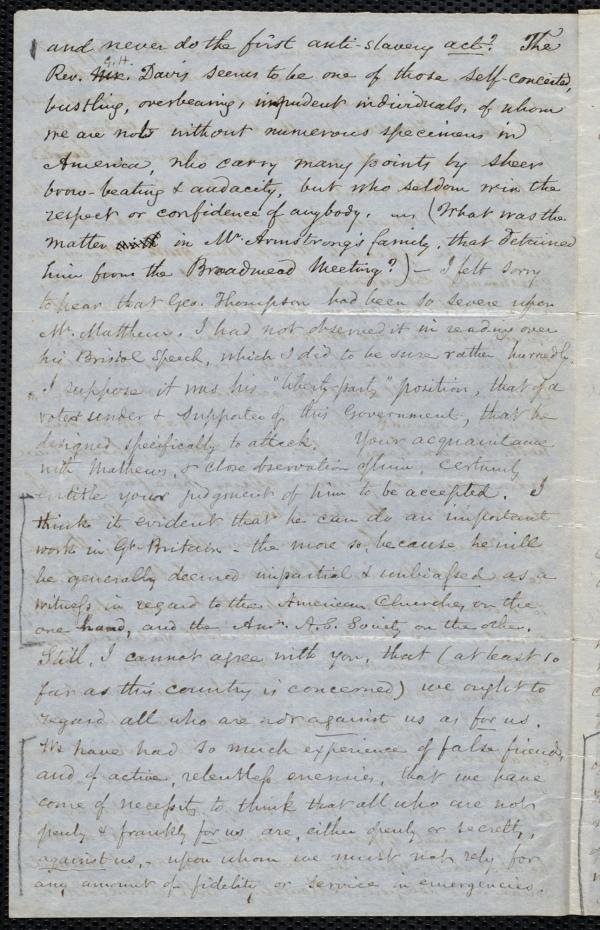 and never do the first anti-slavery act? The
G.H.
Rev. Mr. Davis seems to be one of those self-conceited,
bustling, overbearing, impudent individuals, of whom
we are not without numerous specimens in
America, who carry many points by sheer
brow-beating & audacity, but who seldom win the
respect or confidence of anybody. (What was the
matter in Mr. Armstrong's family, that detained
him from the Broadmead Meeting?) - I felt sorry
to hear that Geo. Thompson had been so severe upon
Mr. Matthews. I had not observed it in reading over
his Bristol Speech, which I did to be sure rather hurriedly.
I suppose it was his "liberty party" position, that of a
voter under & supporter of this Government, that he
designed specifically to attack. Your acquaintance
with Mathews, & close observation of him, certainly
entitle your judgment of him to be accepted. I
think it evident that he can do an important
work in Gt. Britain - the more so, because he will
be generally deemed impartial & unbiassed as a
witness in regard to the American Churches, on the
one hand, and the Amn. A.S. Society on the other.
Still, I cannot agree with you, that (at least so
far as this country is concerned) we ought to
regard all who are not against us as for us.
We have had so much experience of false friends,
and of active, relentless enemies, that we have
come of necessity to think that all who are not
openly & frankly for us are, either openly or secretly,
against us, - upon whom we must not rely for
any amount of fidelity or service in emergencies.